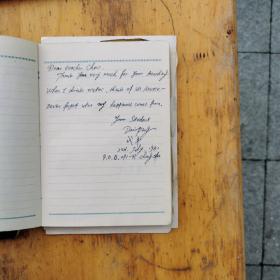 Dear teacher Chen:
Thank you very much for your teaching.
When I drink water, think of its source—
never forget where my happiness comes from.
Your Student
2nd. July.
P.O.B.